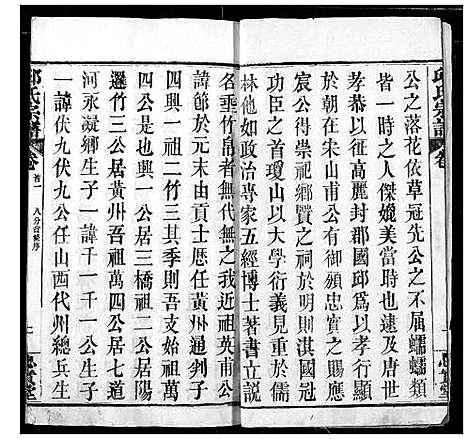 邱氏宗譜
卷
公之落花依草冠先公之不屈蠕蠕類
皆一時之人傑媲美當時也逮及唐世
孝恭以征高麗封郡國邱爲以孝行顯
在於朱山甫公有御頒忠之賜應
宸公得崇祀鄉賢之祠於明淇國冠
功臣之首瓊山以大學衍義見重於儒
林他如政治專家五經博士著書立說
名垂竹帛者無代無之我近祖英甫公
諱節於元末由貢士歷任黃州通判子
四公長一祖二竹三其季則四萬始祖萬
四公是也興一公居三橋祖二公居陽
邏竹三公居黃州吾祖萬四公居七道
河永凝鄉生子一諱千一千一公生子
一諱伏九伏九公任山西代州總兵生
邱氏宗譜
卷
首一
八分首整序
忠實堂